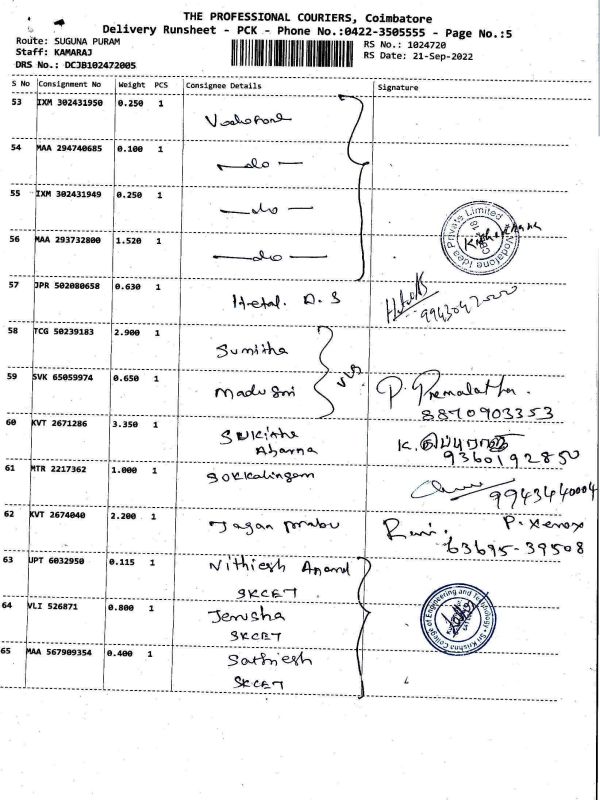 THE PROFESSIONAL COURIERS, Coimbatore
Delivery Runsheet - PCK - Phone No.:0422-3505555 - Page No.:5
Route: SUGUNA PURAM
RS No.: 1024720
Staff: KAMARAJ
RS Date: 21-Sep-2022
DRS No.: DCJB102472005
S No Consignment No Weight PCS Consignee Details Signature
53 IXM 302431950 0.250 1 Vodofone
54 MAA 294740685 0.100 1 —do—
55 IXM 302431949 0.250 1 —do—
56 MAA 293732800 1.520 1 —do—
Vodafone Idea Private Limited
57 JPR 502080658 0.630 1 Hetal. D. S
9943042000
58 TCG 50239183 2.900 1 Sumitha
59 SVK 65059974 0.650 1 Madu Sri P. Premalatha.
8870903353
60 KVT 2671286 3.350 1 K.
Abarna 9360192850
61 MTR 2217362 1.000 1 Sokkalingam
9943440004
62 KVT 2674040 2.200 1 Jagan prabu P. Xerox
63695-39508
63 UPT 6032950 0.115 1 Nithiesh Anand
SKCET
64 VLI 526871 0.800 1 Jerusha
SKCET
Sri Krishna College of Engineering and Technology
65 MAA 567909354 0.400 1 Sathiesh
SKCET